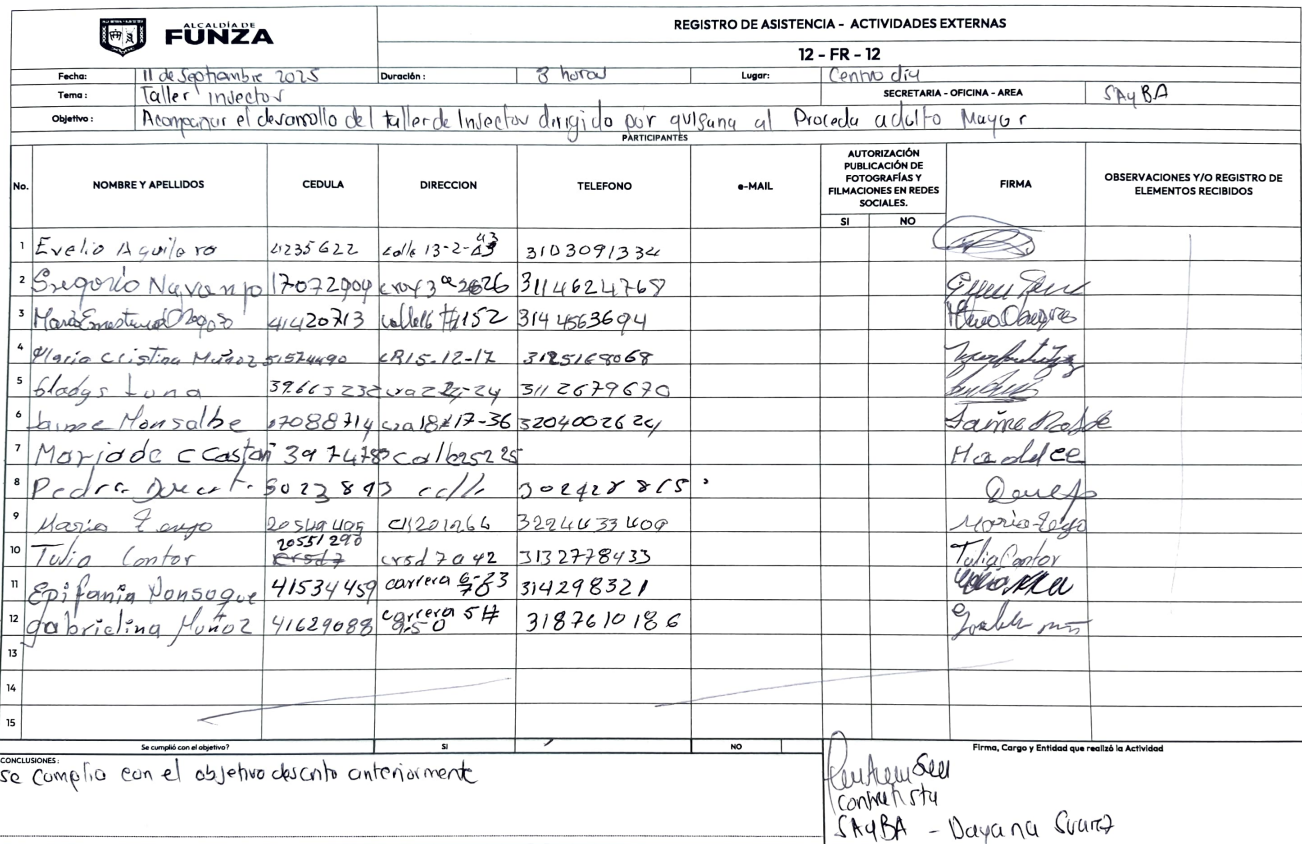 ALCALDÍA DE
FUNZA
REGISTRO DE ASISTENCIA - ACTIVIDADES EXTERNAS
12 - FR - 12
Fecha: 11 de Septiembre 2025 Duración : 3 horas Lugar: Centro dia
Tema : Taller insector SECRETARIA - OFICINA - AREA SAyBA
Objetivo : Acompañar el desarrollo del taller de Insector dirigido por quisana al Proceda adulto Mayor
PARTICIPANTES
No. NOMBRE Y APELLIDOS CEDULA DIRECCION TELEFONO e-MAIL AUTORIZACIÓN PUBLICACIÓN DE FOTOGRAFÍAS Y FILMACIONES EN REDES SOCIALES. FIRMA OBSERVACIONES Y/O REGISTRO DE ELEMENTOS RECIBIDOS
SI NO
1 Evelio Aguilaro 4235622 calle 13-2-43 3103091334
2 Gregorio Navanjo 17072904 3114624768
3 41420713 #152 3144563694
4 Maria Cristina Muñoz 51574490 CR15-12-17 3125168068
5 Gladys Luna 39.665232 3112679670
6 Jaime Monsalbe 17088714 cra18#17-36 3204002624
7 Mariade c Castañ Ma del ce
8 Pedro
9 Maria 20549495 3224433409
10 Tulia Contor 20551290 crsd 7a 42 3132778433 Tulia Contor
11 Epifania Ponsogue 41534459 carrera 314298321
12 gabrielina Muñoz 41629088 carrera 5# 9-50 3187610186
13
14
15
Se cumplió con el objetivo? SI NO Firma, Cargo y Entidad que realizó la Actividad
CONCLUSIONES :
se cumplio con el objetivo descrito anteriormente
contratista
SAyBA - Dayana Suarez